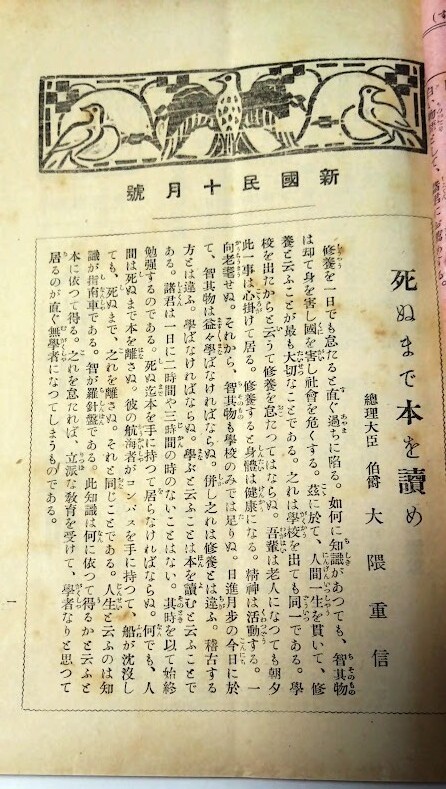 新國民十月號
死ぬまで本を讀め
總理大臣 伯爵 大隈重信
修養を一日でも怠たると直ぐ過ちに陥る。如何に知識があつても、智其物
は却て身を害し國を害し社會を危くする。茲に於て、人間一生を貫いて、修
養と云ふことが最も大切なことである。之れは學校を出ても同一である。學
校を出たからと云うて修養を怠たつてはならぬ。吾輩は老人になつても朝夕
此一事は心掛けて居る。修養すると身體は健康になる。精神は活動する。一
向老耄せぬ。それから、智其物も學校のみでは足りぬ。日進月步の今日に於
て、智其物は益々學ばなければならぬ。併し之れは修養とは違ふ。稽古する
方とは違ふ。學ばなければならぬ。學ぶと云ふことは本を讀むと云ふことで
ある。諸君は一日に二時間や三時間の時のないことはない。其時を以て始終
勉强するのである。死ぬ迄本を手に持つて居らなければならぬ。何でも、人
間は死ぬまで本を離さぬ。彼の航海者がコンパスを手に持つて、船が沈沒し
ても、死ぬまで、之れを離さぬ。それと同じことである。人生と云ふのは知
識が指南車である。智が羅針盤である。此知識は何に依つて得るかと云ふと
本に依つて得る。之れを怠たれば、立派な敎育を受けて、學者なりと思つて
居るのが直ぐ無學者になつてしまうものである。
一